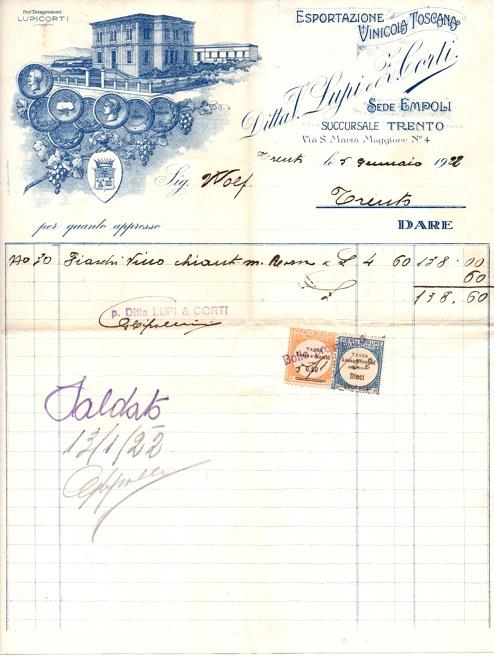 Per Telegrammi
LUPICORTI
ESPORTAZIONE
VINICOLA TOSCANA
Ditta V. Lupi e F. Corti.
SEDE EMPOLI
SUCCURSALE TRENTO
VIA S. MARIA MAGGIORE No 4
Trento li 5 gennaio 1922
Sig. Wolf
Trento
per quanto appresso
DARE
No 30 Fiaschi Vino chianti m. Rosso a £ 4 60 138.00
60
138.60
p. Ditta LUPI & CORTI
TASSA
0,50
TASSA
Dieci
Saldato
13/1/22